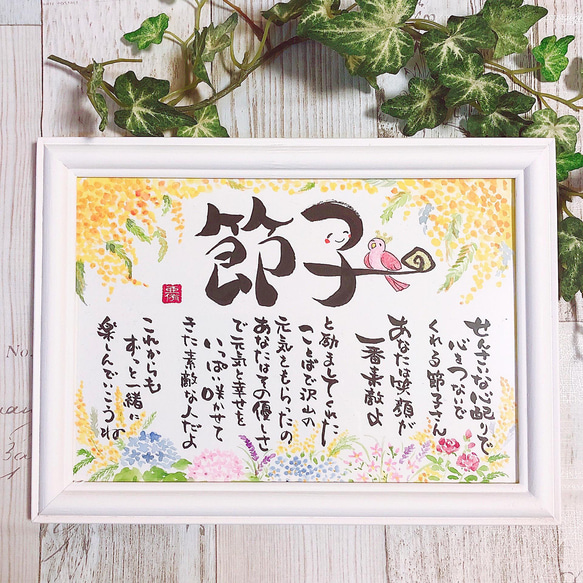 節子
せんさいな心配りで
心をつないで
くれる節子さん
あなたは笑顔が
一番素敵よ
と励ましてくれた
ことばで沢山の
元気をもらったの
あなたはその優しさ
で元気と幸せを
いっぱい咲かせて
きた素敵な人だよ
これからも
ずっと一緒に
楽しんでいこうね
No.